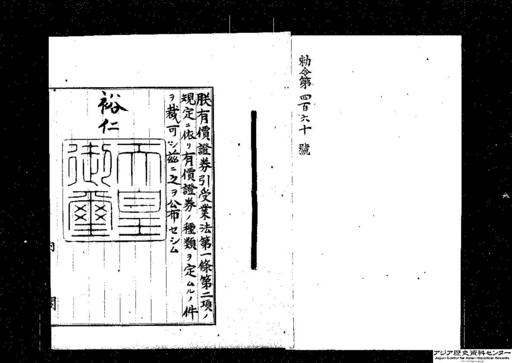 勅令第四百六十號
朕有價證券引受業法第一條第二項ノ
規定ニ依リ有價證券ノ種類ヲ定ムルノ件
ヲ裁可シ茲ニ之ヲ公布セシム
裕仁
天皇
御璽
アジア歴史資料センター
Japan Center for Asian Historical Records